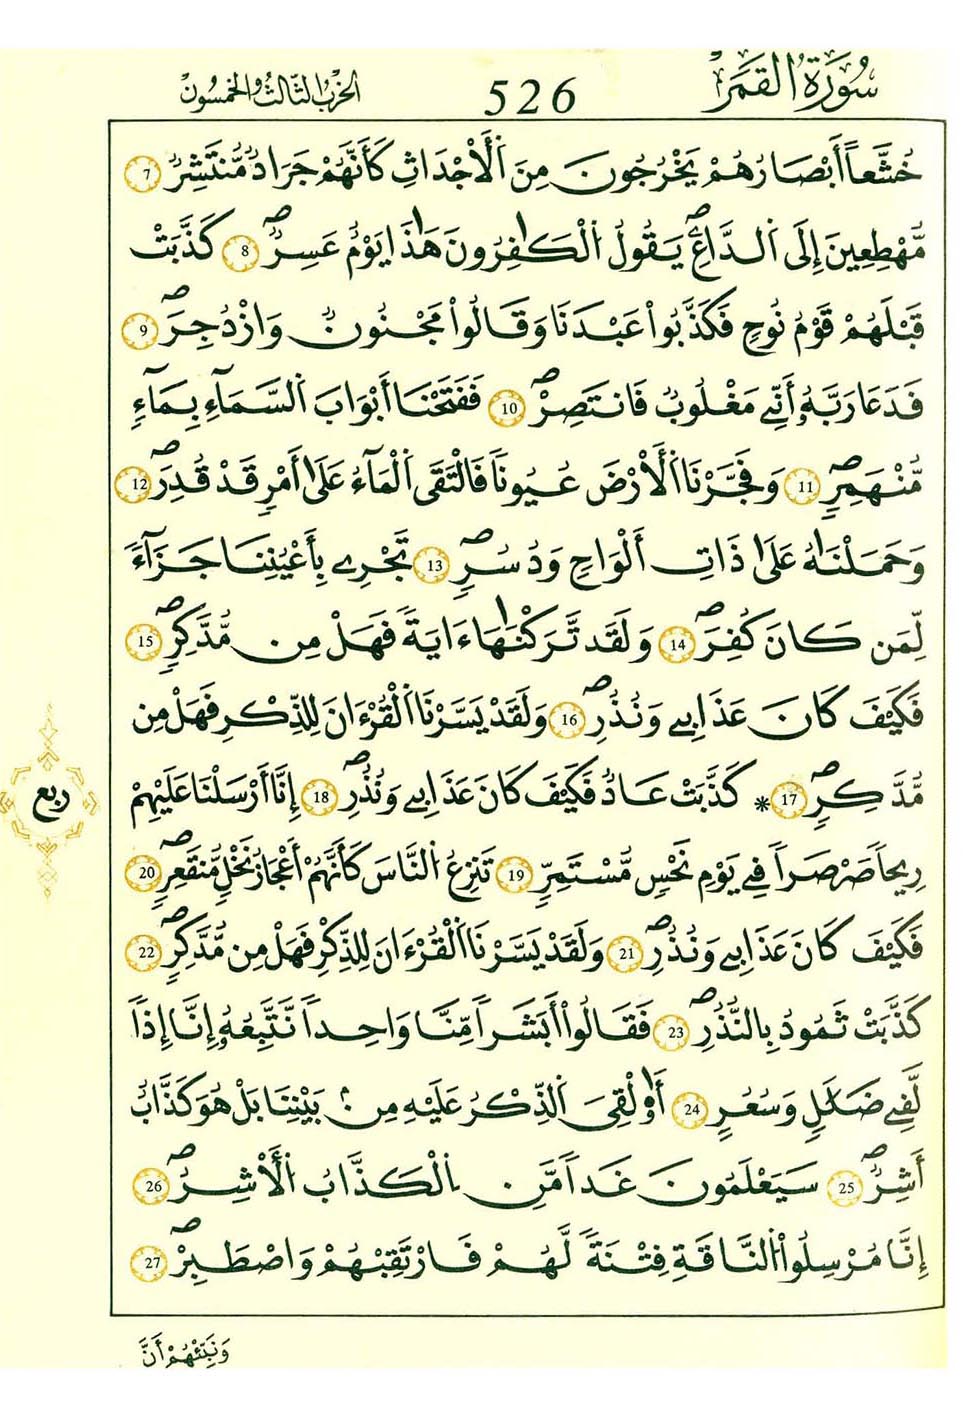 سُورَةُ الْقَمَرِ 526 الحِزْبُ الثَّالِثُ وَالْخَمْسُونَ
خُشَّعاً أَبْصَـٰرُهُمْ يَخْرُجُونَ مِنَ اَ۬لْأَجْدَاثِ كَأَنَّهُمْ جَرَادٞ مُّنتَشِرٞ 7
مُّهْطِعِينَ إِلَى اَ۬لدَّاعِۦ يَقُولُ اُ۬لْكَـٰفِرُونَ هَـٰذَا يَوْمٌ عَسِرٞۖ 8 كَذَّبَتْ
قَبْلَهُمْ قَوْمُ نُوحٖ فَكَذَّبُواْ عَبْدَنَا وَقَالُواْ مَجْنُونٞ وَازْدُجِرَۖ 9
فَدَعَا رَبَّهُۥ أَنِّے مَغْلُوبٞ فَانتَصِرْۖ 10 فَفَتَحْنَا أَبْوَابَ اَ۬لسَّمَآءِ بِمَآءٖ
مُّنْهَمِرٖۖ 11 وَفَجَّرْنَا اَ۬لْأَرْضَ عُيُوناً فَالْتَقَى اَ۬لْمَآءُ عَلَىٰ أَمْرٖ قَدْ قُدِرَۖ 12
وَحَمَلْنَـٰهُ عَلَىٰ ذَاتِ أَلْوَاحٖ وَدُسُرٖۖ 13 تَجْرِے بِأَعْيُنِنَا جَزَآءً
لِّمَن كَانَ كُفِرَۖ 14 وَلَقَد تَّرَكْنَـٰهَا ءَايَةً فَهَلْ مِن مُّدَّكِرٖۖ 15
فَكَيْفَ كَانَ عَذَابِے وَنُذُرِۦۖ 16 وَلَقَدْ يَسَّرْنَا اَ۬لْقُرْءَانَ لِلذِّكْرِ فَهَلْ مِن
مُّدَّكِرٖۖ 17 * كَذَّبَتْ عَادٞ فَكَيْفَ كَانَ عَذَابِے وَنُذُرِۦۖ 18 إِنَّا أَرْسَلْنَا عَلَيْهِمْ
رِيحاً صَرْصَراً فِے يَوْمِ نَحْسٖ مُّسْتَمِرّٖ 19 تَنزِعُ اُ۬لنَّاسَ كَأَنَّهُمْ أَعْجَازُ نَخْلٖ مُّنقَعِرٖۖ 20
فَكَيْفَ كَانَ عَذَابِے وَنُذُرِۦۖ 21 وَلَقَدْ يَسَّرْنَا اَ۬لْقُرْءَانَ لِلذِّكْرِ فَهَلْ مِن مُّدَّكِرٖۖ 22
كَذَّبَتْ ثَمُودُ بِالنُّذُرِۖ 23 فَقَالُواْ أَبَشَراً مِّنَّا وَاحِداً نَّتَّبِعُهُۥ إِنَّا إِذاً
لَّفِے ضَلَـٰلٖ وَسُعُرٍ 24 أَ۟لْقِيَ اَ۬لذِّكْرُ عَلَيْهِ مِنۢ بَيْنِنَا بَلْ هُوَ كَذَّابٌ
أَشِرٞۖ 25 سَيَعْلَمُونَ غَداً مَّنِ اِ۬لْكَذَّابُ اُ۬لْأَشِرُۖ 26
إِنَّا مُرْسِلُواْ اُ۬لنَّاقَةِ فِتْنَةً لَّهُمْ فَارْتَقِبْهُمْ وَاصْطَبِرْۖ 27
ربع
وَنَبِّئْهُمْ أَنَّ